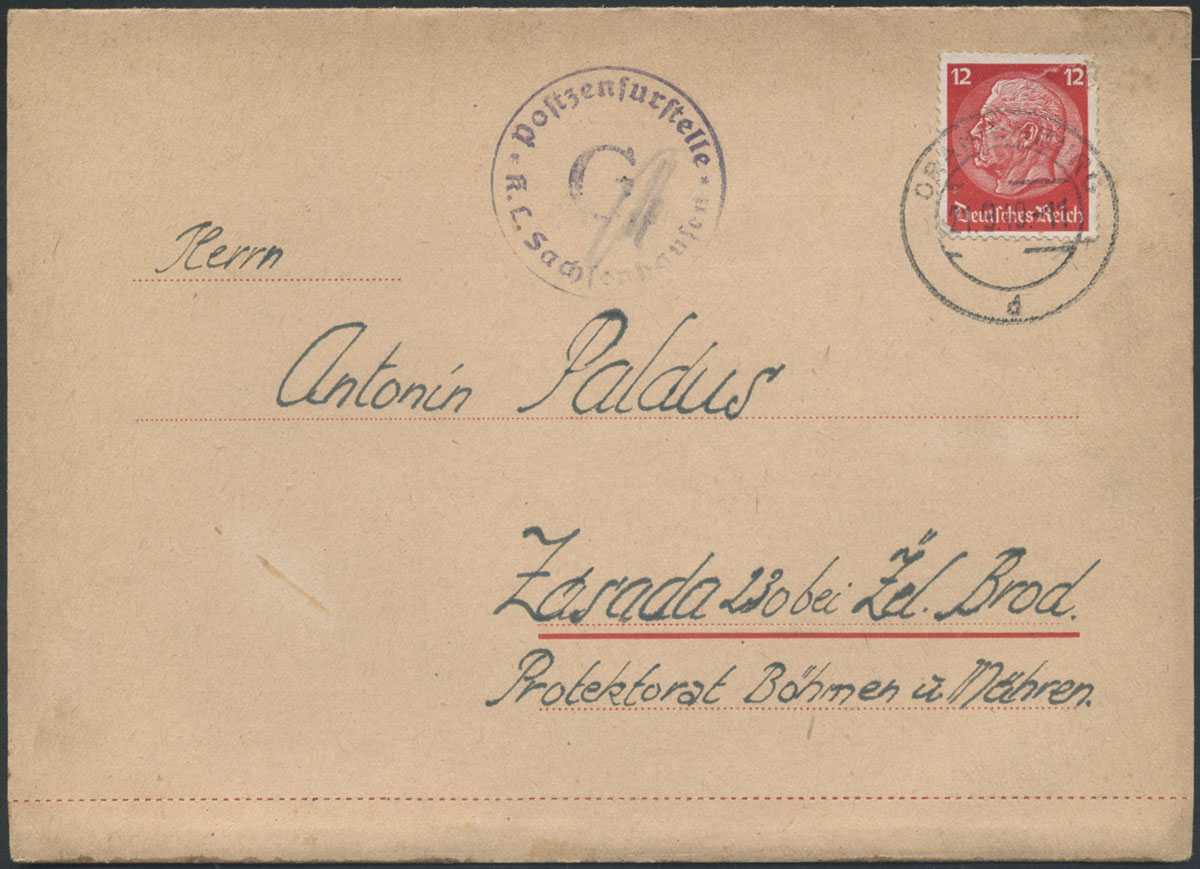 * Postzensurstelle *
K.L. Sachsenhausen
G
12 12
Deutsches Reich
d
Herrn
Antonín Paldus
Zásada 230 bei Žel. Brod.
Protektorat Böhmen u Mähren.